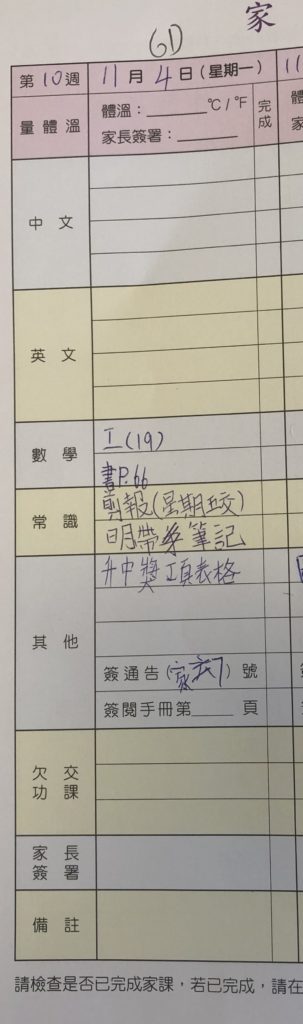 家
6D
第10週 11月4日(星期一) 11
量體溫 體溫：______°C/°F 完成
家長簽署：______
中文
英文
數學 工(19)
書P.66
常識 剪報(星期五交)
明帶筆記
其他 升中獎項表格
簽通告(家 7)號
簽閱手冊第____頁
欠交功課
家長簽署
備註
請檢查是否已完成家課，若已完成，請在